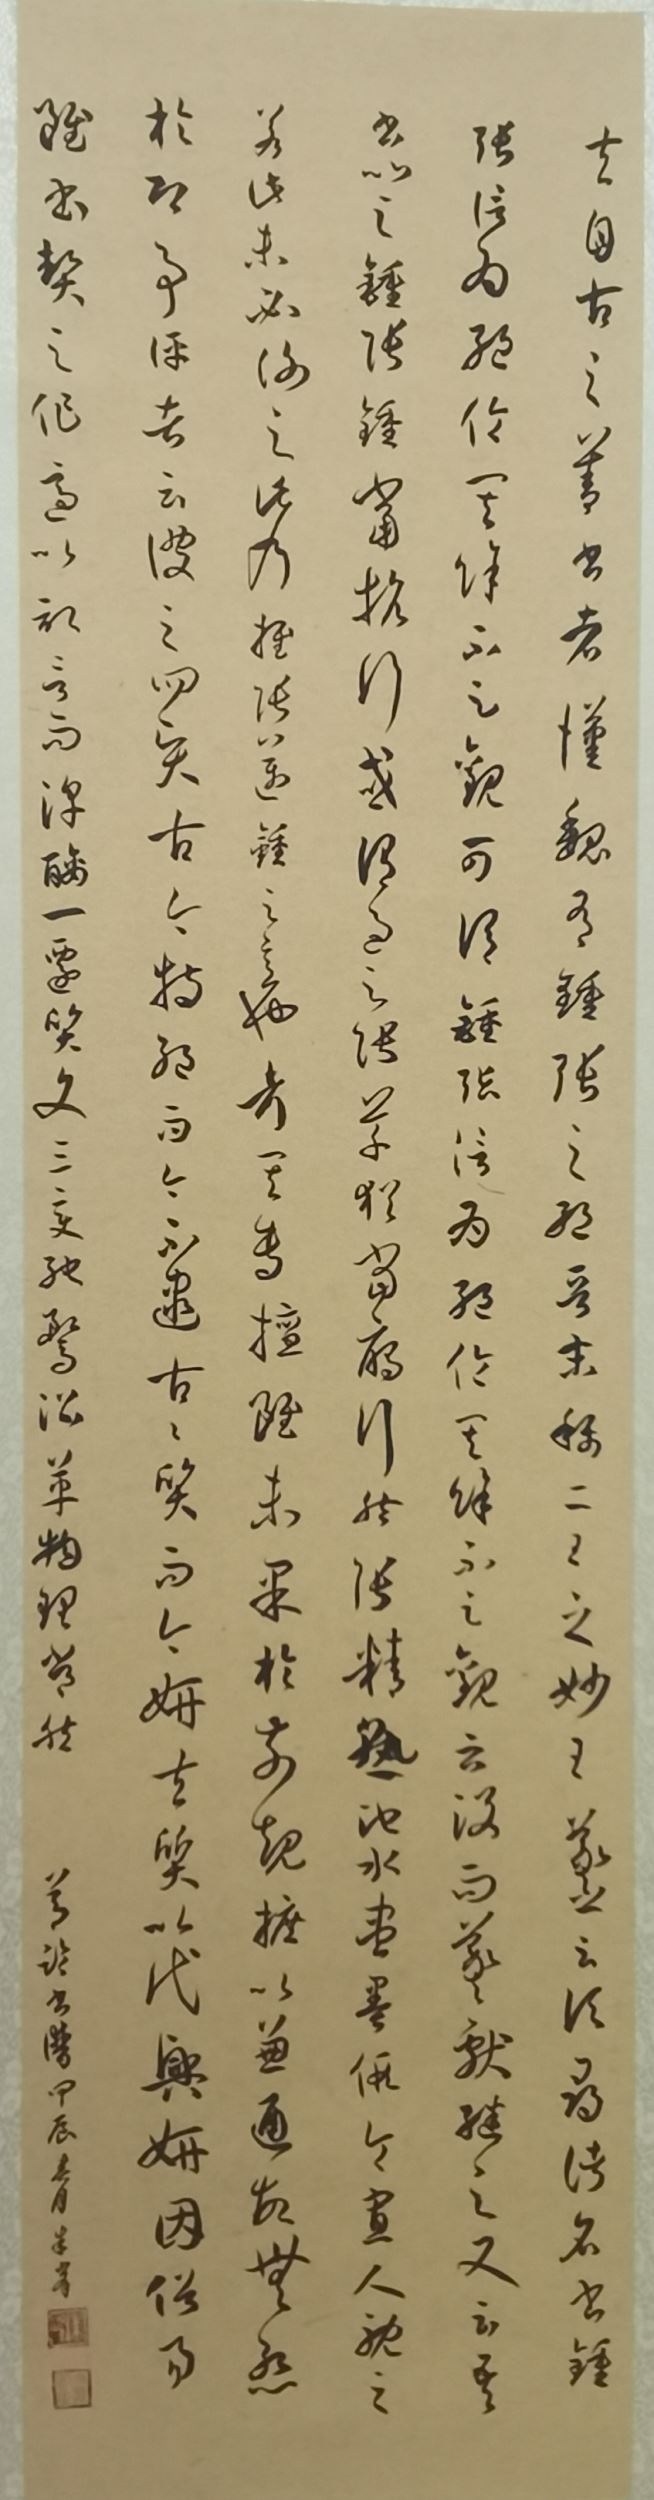 夫自古之善書者漢魏有鍾張之絕晉末稱二王之妙王羲之云頃尋諸名書鍾
張信為絕倫其餘不足觀可謂鍾張信為絕倫其餘不足觀云沒而羲獻繼之又云吾
書比之鍾張鍾當抗行或謂過之張草猶當雁行然張精熟池水盡墨假令寡人耽之
若此未必謝之此乃推張邁鍾之意也考其專擅雖未果於前規摭以兼通故無慚
於即事評者云彼之四賢古今特絕而今不逮古古質而今妍夫質以代興妍因俗易
雖書契之作適以記言而淳醨一遷質文三變馳騖沿革物理常然
節臨書譜甲辰春月